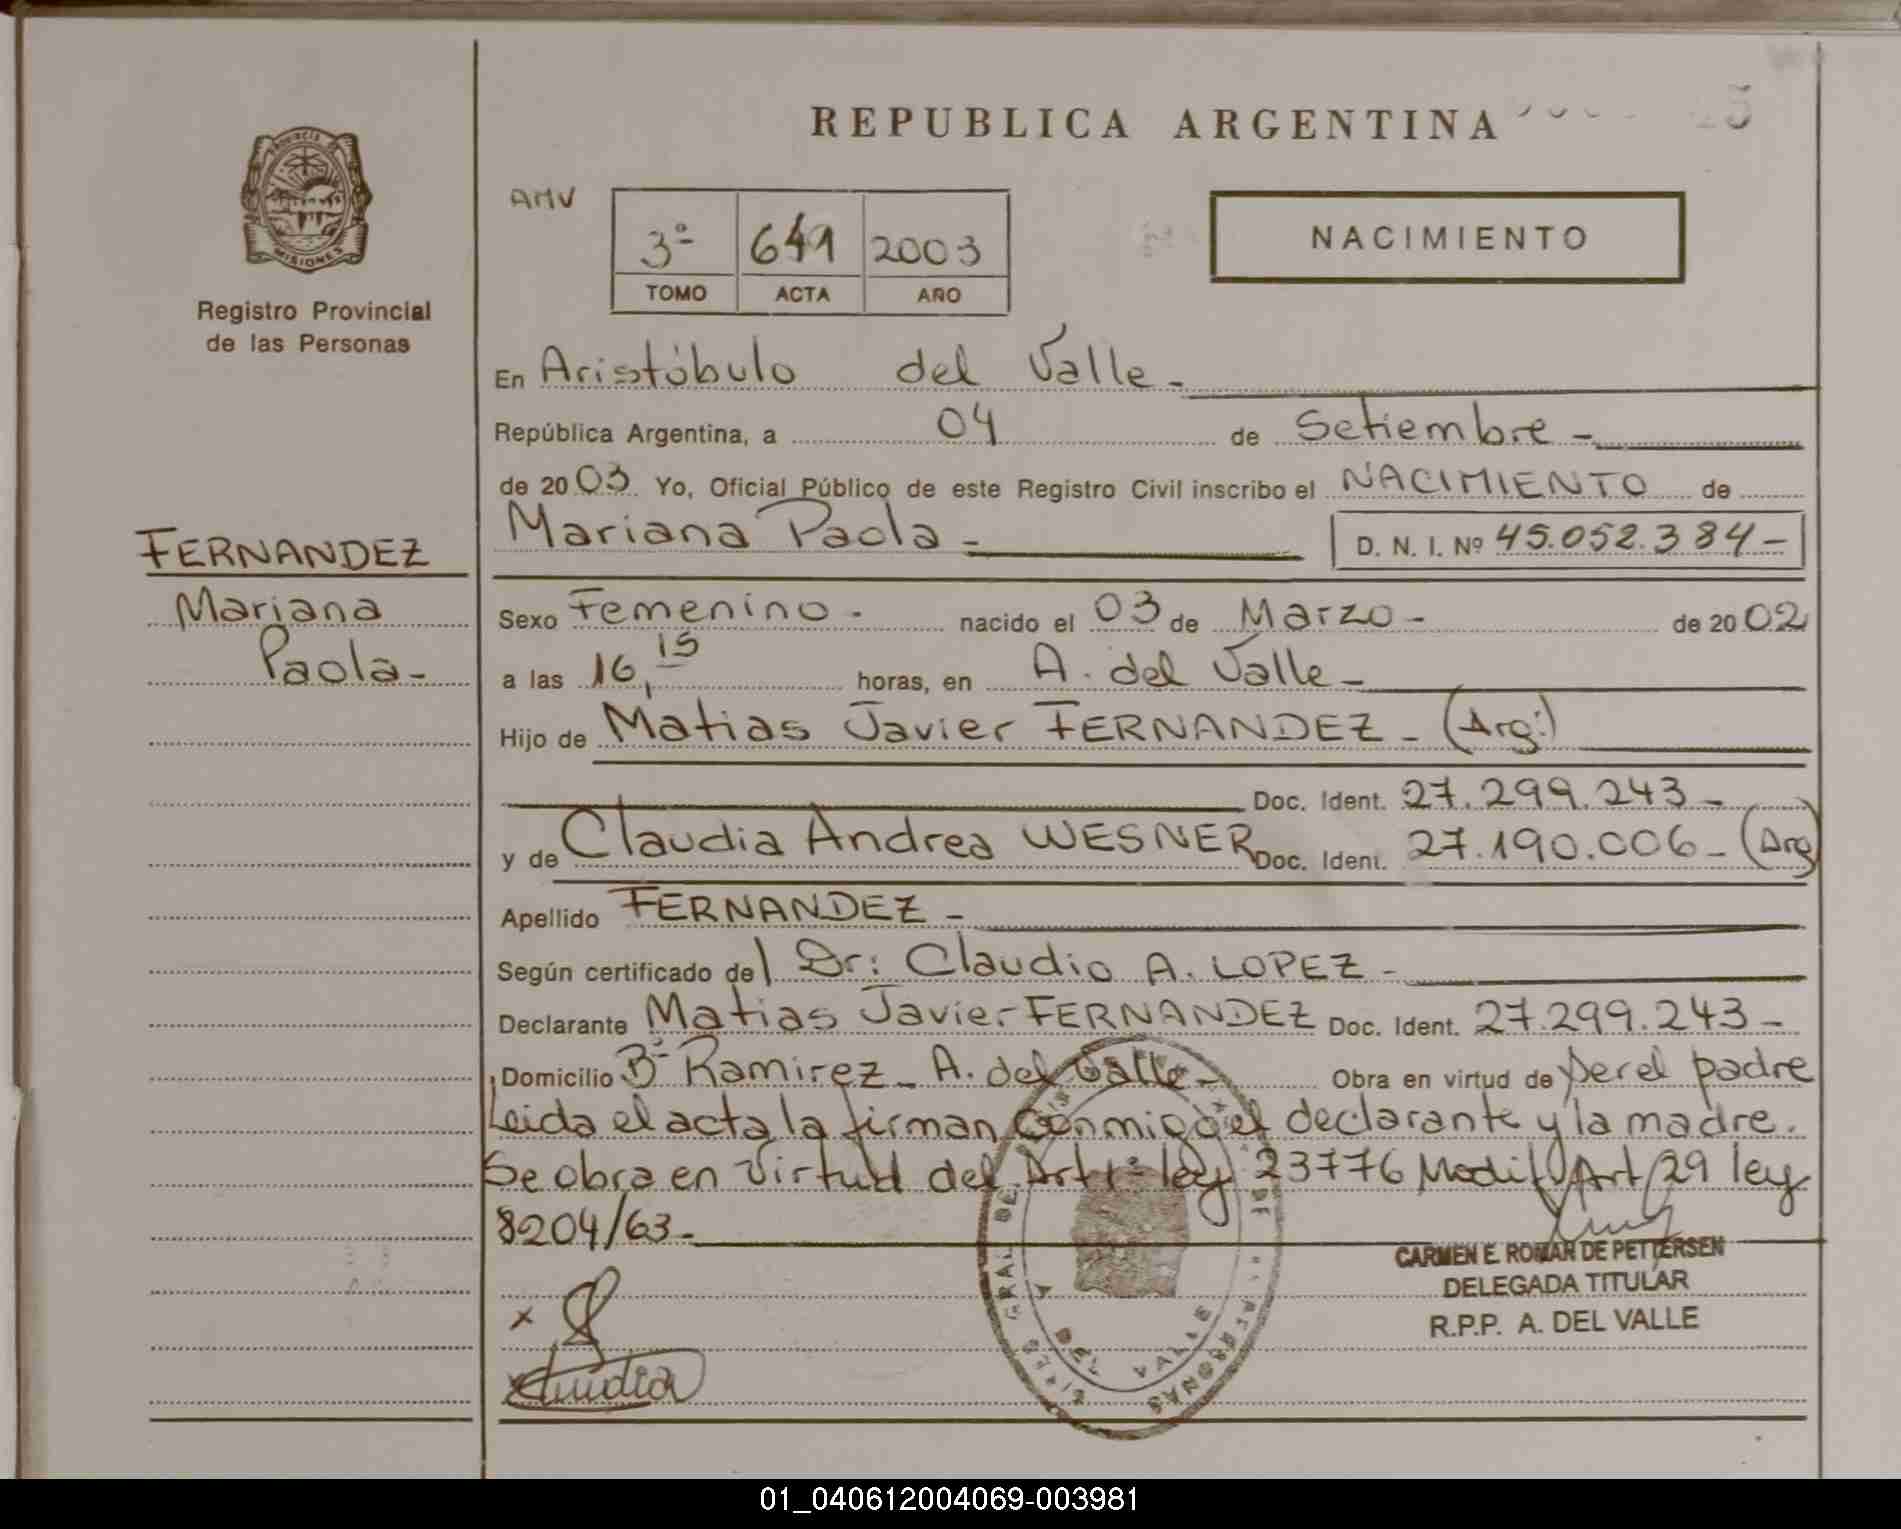 REPUBLICA ARGENTINA
PROVINCIA DE
MISIONES
Registro Provincial
de las Personas
AMV
3º 641 2003
TOMO ACTA AÑO
NACIMIENTO
En Aristóbulo del Valle.-
República Argentina, a 04 de Setiembre -
de 2003. Yo, Oficial Público de este Registro Civil inscribo el NACIMIENTO de
Mariana Paola - D. N. I. Nº 45.052.384-
FERNANDEZ
Mariana
Paola-
Sexo Femenino - nacido el 03 de Marzo - de 2002
a las 16,15 horas, en A. del Valle -
Hijo de Matias Javier FERNANDEZ - (Arg:)
Doc. Ident. 27.299.243-
y de Claudia Andrea WESNER Doc. Ident. 27.190.006- (Arg)
Apellido FERNANDEZ -
Según certificado del Dr: Claudio A. LOPEZ -
Declarante Matias Javier FERNANDEZ Doc. Ident. 27.299.243-
Domicilio Bº Ramirez - A. del Valle - Obra en virtud de ser el padre
Leida el acta la firman conmigo el declarante y la madre.
Se obra en virtud del Art 1º ley 23776 Modif Art 29 ley
8204/63.-
CARMEN E. ROMAN DE PETTERSEN
DELEGADA TITULAR
R.P.P. A. DEL VALLE
x
Claudia
A DEL VALLE
01_040612004069-003981